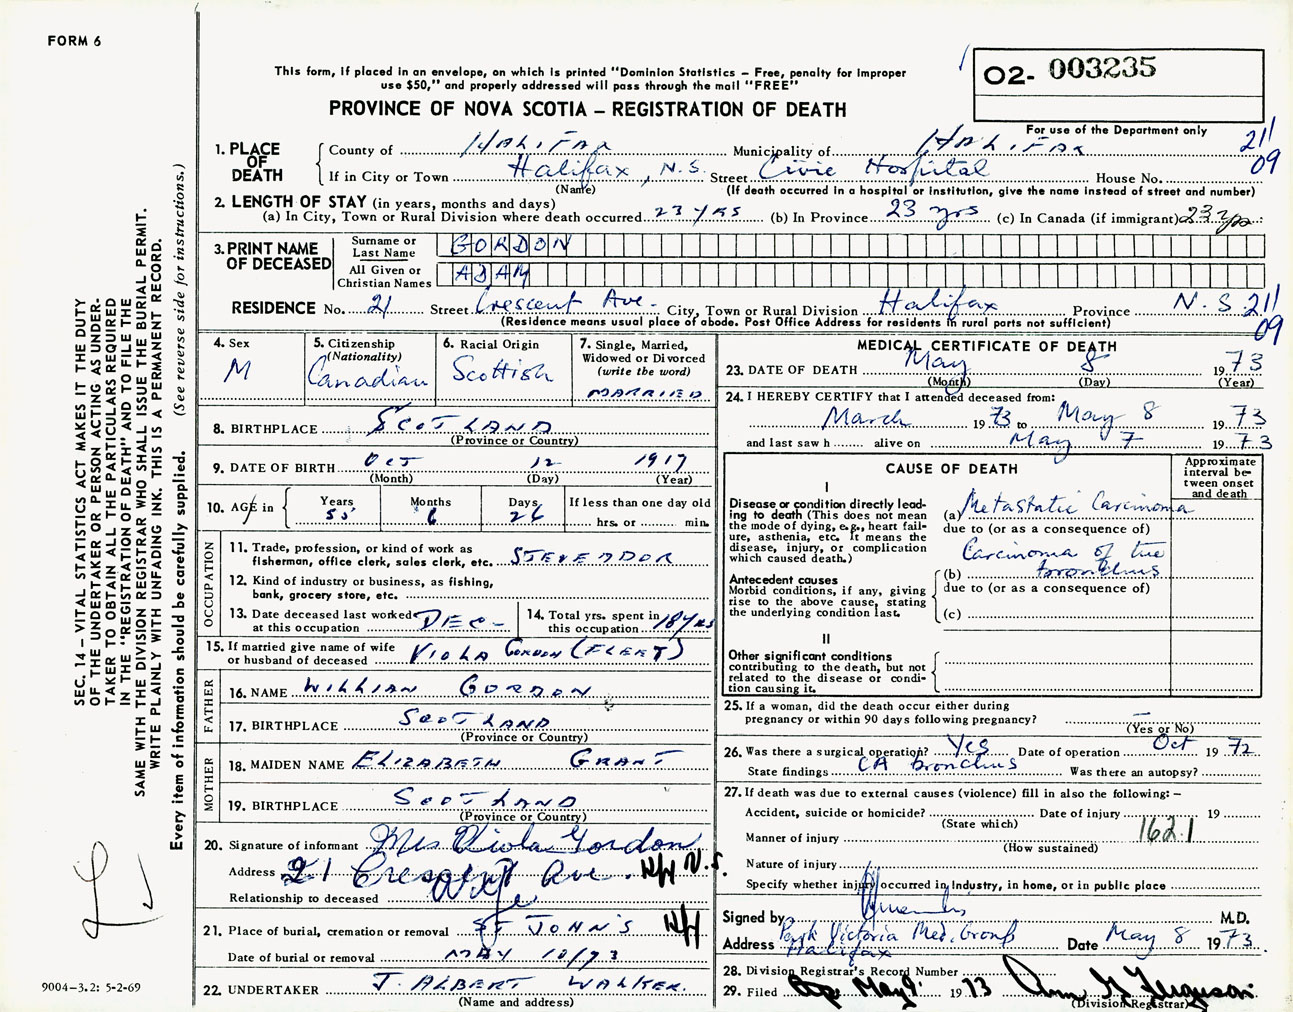 FORM 6
This form, if placed in an envelope, on which is printed "Dominion Statistics – Free, penalty for improper
use $50," and properly addressed will pass through the mail "FREE"
O2- 003235
PROVINCE OF NOVA SCOTIA – REGISTRATION OF DEATH
For use of the Department only
211
09
1. PLACE OF DEATH
County of Halifax Municipality of Halifax
If in City or Town Halifax, N.S. Street Civic Hospital House No.
(Name) (If death occurred in a hospital or institution, give the name instead of street and number)
2. LENGTH OF STAY (in years, months and days)
(a) In City, Town or Rural Division where death occurred 23 yrs (b) In Province 23 yrs (c) In Canada (if immigrant) 23 yrs
3. PRINT NAME OF DECEASED
Surname or Last Name GORDON
All Given or Christian Names ADAM
RESIDENCE No. 21 Street Crescent Ave. City, Town or Rural Division Halifax Province N.S. 211
09
(Residence means usual place of abode. Post Office Address for residents in rural parts not sufficient)
4. Sex M
5. Citizenship (Nationality) Canadian
6. Racial Origin Scottish
7. Single, Married, Widowed or Divorced (write the word) MARRIED
8. BIRTHPLACE SCOTLAND
(Province or Country)
9. DATE OF BIRTH OCT 12 1917
(Month) (Day) (Year)
10. AGE in Years 55 Months 6 Days 26 If less than one day old
hrs. or min.
OCCUPATION
11. Trade, profession, or kind of work as
fisherman, office clerk, sales clerk, etc. STEVEDDOR
12. Kind of industry or business, as fishing,
bank, grocery store, etc.
13. Date deceased last worked at this occupation DEC –
14. Total yrs. spent in this occupation 18 yrs
15. If married give name of wife
or husband of deceased VIOLA GORDON (FLEET)
FATHER
16. NAME WILLIAN GORDON
17. BIRTHPLACE SCOTLAND
(Province or Country)
MOTHER
18. MAIDEN NAME ELIZABETH GRANT
19. BIRTHPLACE SCOTLAND
(Province or Country)
20. Signature of informant Mrs Viola Gordon
Address 21 Crescent Ave. Hfx N.S.
Relationship to deceased Wife
21. Place of burial, cremation or removal ST JOHN'S Hfx
Date of burial or removal MAY 10/73
22. UNDERTAKER J. ALBERT WALKER.
(Name and address)
MEDICAL CERTIFICATE OF DEATH
23. DATE OF DEATH May 8 1973
(Month) (Day) (Year)
24. I HEREBY CERTIFY that I attended deceased from:
March 1973 to May 8 1973
and last saw h alive on May 7 1973
CAUSE OF DEATH
Approximate interval between onset and death
I
Disease or condition directly leading to death (This does not mean the mode of dying, e.g., heart failure, asthenia, etc. It means the disease, injury, or complication which caused death.)
(a) Metastatic Carcinoma
due to (or as a consequence of)
Carcinoma of the
(b) bronchus
due to (or as a consequence of)
(c)
Antecedent causes
Morbid conditions, if any, giving rise to the above cause, stating the underlying condition last.
II
Other significant conditions
contributing to the death, but not related to the disease or condition causing it.
25. If a woman, did the death occur either during
pregnancy or within 90 days following pregnancy? –
(Yes or No)
26. Was there a surgical operation? Yes Date of operation Oct 1972
State findings CA bronchus Was there an autopsy?
27. If death was due to external causes (violence) fill in also the following: –
Accident, suicide or homicide? Date of injury 19
(State which)
Manner of injury 162.1
(How sustained)
Nature of injury
Specify whether injury occurred in industry, in home, or in public place
Signed by M.D.
Address Park Victoria Med. Group Date May 8 1973
Halifax
28. Division Registrar's Record Number
29. Filed May 9 1973 Ann G Ferguson
(Division Registrar)
SEC. 14 – VITAL STATISTICS ACT MAKES IT THE DUTY
OF THE UNDERTAKER OR PERSON ACTING AS UNDER-
TAKER TO OBTAIN ALL THE PARTICULARS REQUIRED
IN THE "REGISTRATION OF DEATH" AND TO FILE THE
SAME WITH THE DIVISION REGISTRAR WHO SHALL ISSUE THE BURIAL PERMIT.
WRITE PLAINLY WITH UNFADING INK. THIS IS A PERMANENT RECORD.
Every item of information should be carefully supplied. (See reverse side for instructions.)
9004–3.2: 5-2-69